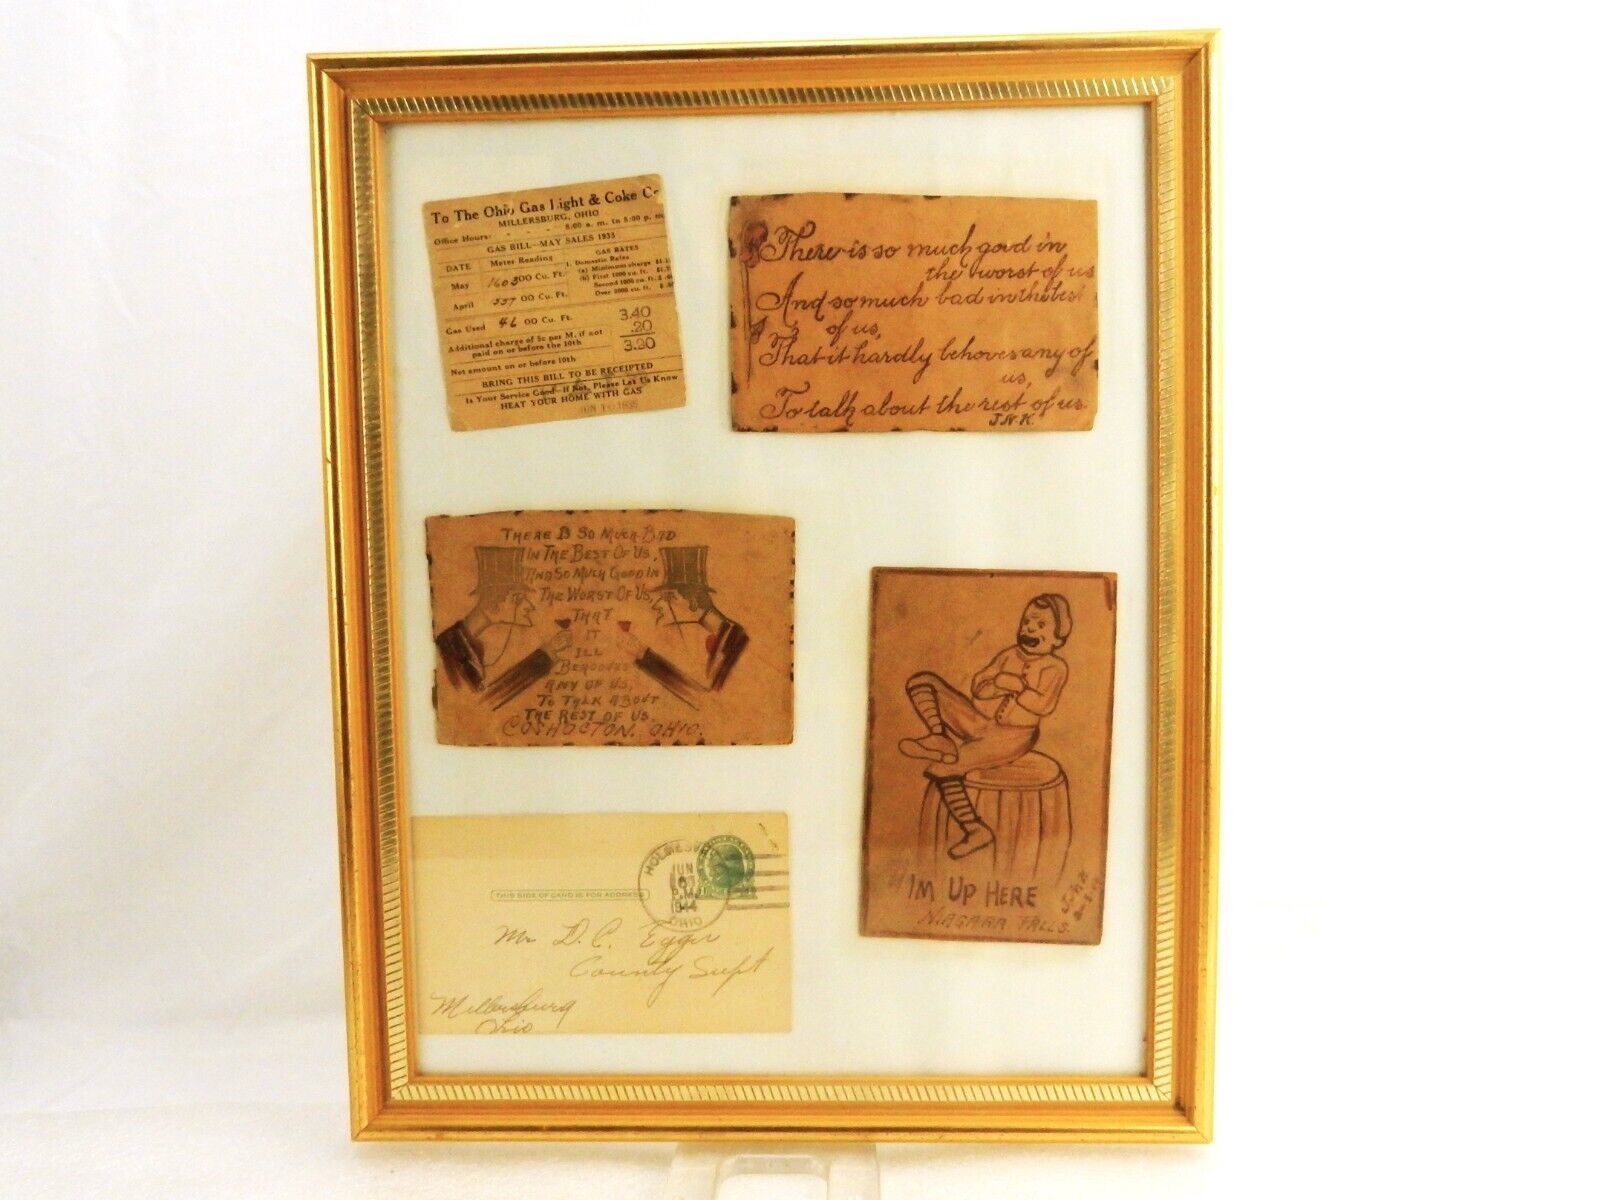 To The Ohio Gas Light & Coke Co
MILLERSBURG, OHIO
Office Hours: - - - 8:00 a. m. to 5:00 p. m
GAS BILL—MAY SALES 1935
DATE Meter Reading
May 1603 00 Cu. Ft.
April 557 00 Cu. Ft.
Gas Used 46 00 Cu. Ft.
GAS RATES
1. Domestic Rates
(a) Minimum charge $1.1
(b) First 1000 cu. ft.
Second 1000 cu. ft.
Over 2000 cu. ft.
3.40
.20
3.20
Additional charge of 5c per M. if not
paid on or before the 10th
Net amount on or before 10th
BRING THIS BILL TO BE RECEIPTED
Is Your Service Good—If Not, Please Let Us Know
HEAT YOUR HOME WITH GAS
JUN 10 1935
There is so much good in
the worst of us
And so much bad in the best
of us,
That it hardly behoves any of
us,
To talk about the rest of us.
J.N.K.
THERE IS SO MUCH BAD
IN THE BEST OF US,
AND SO MUCH GOOD IN
THE WORST OF US,
THAT
IT
ILL
BEHOOVES
ANY OF US,
TO TALK ABOUT
THE REST OF US.
COSHOCTON. OHIO.
I'M UP HERE
NIAGARA FALLS.
HOLMESV
JUN
P.M.
1944
OHIO
THIS SIDE OF CARD IS FOR ADDRESS
Mr D. C. Egger
County Supt
Millersburg
Ohio